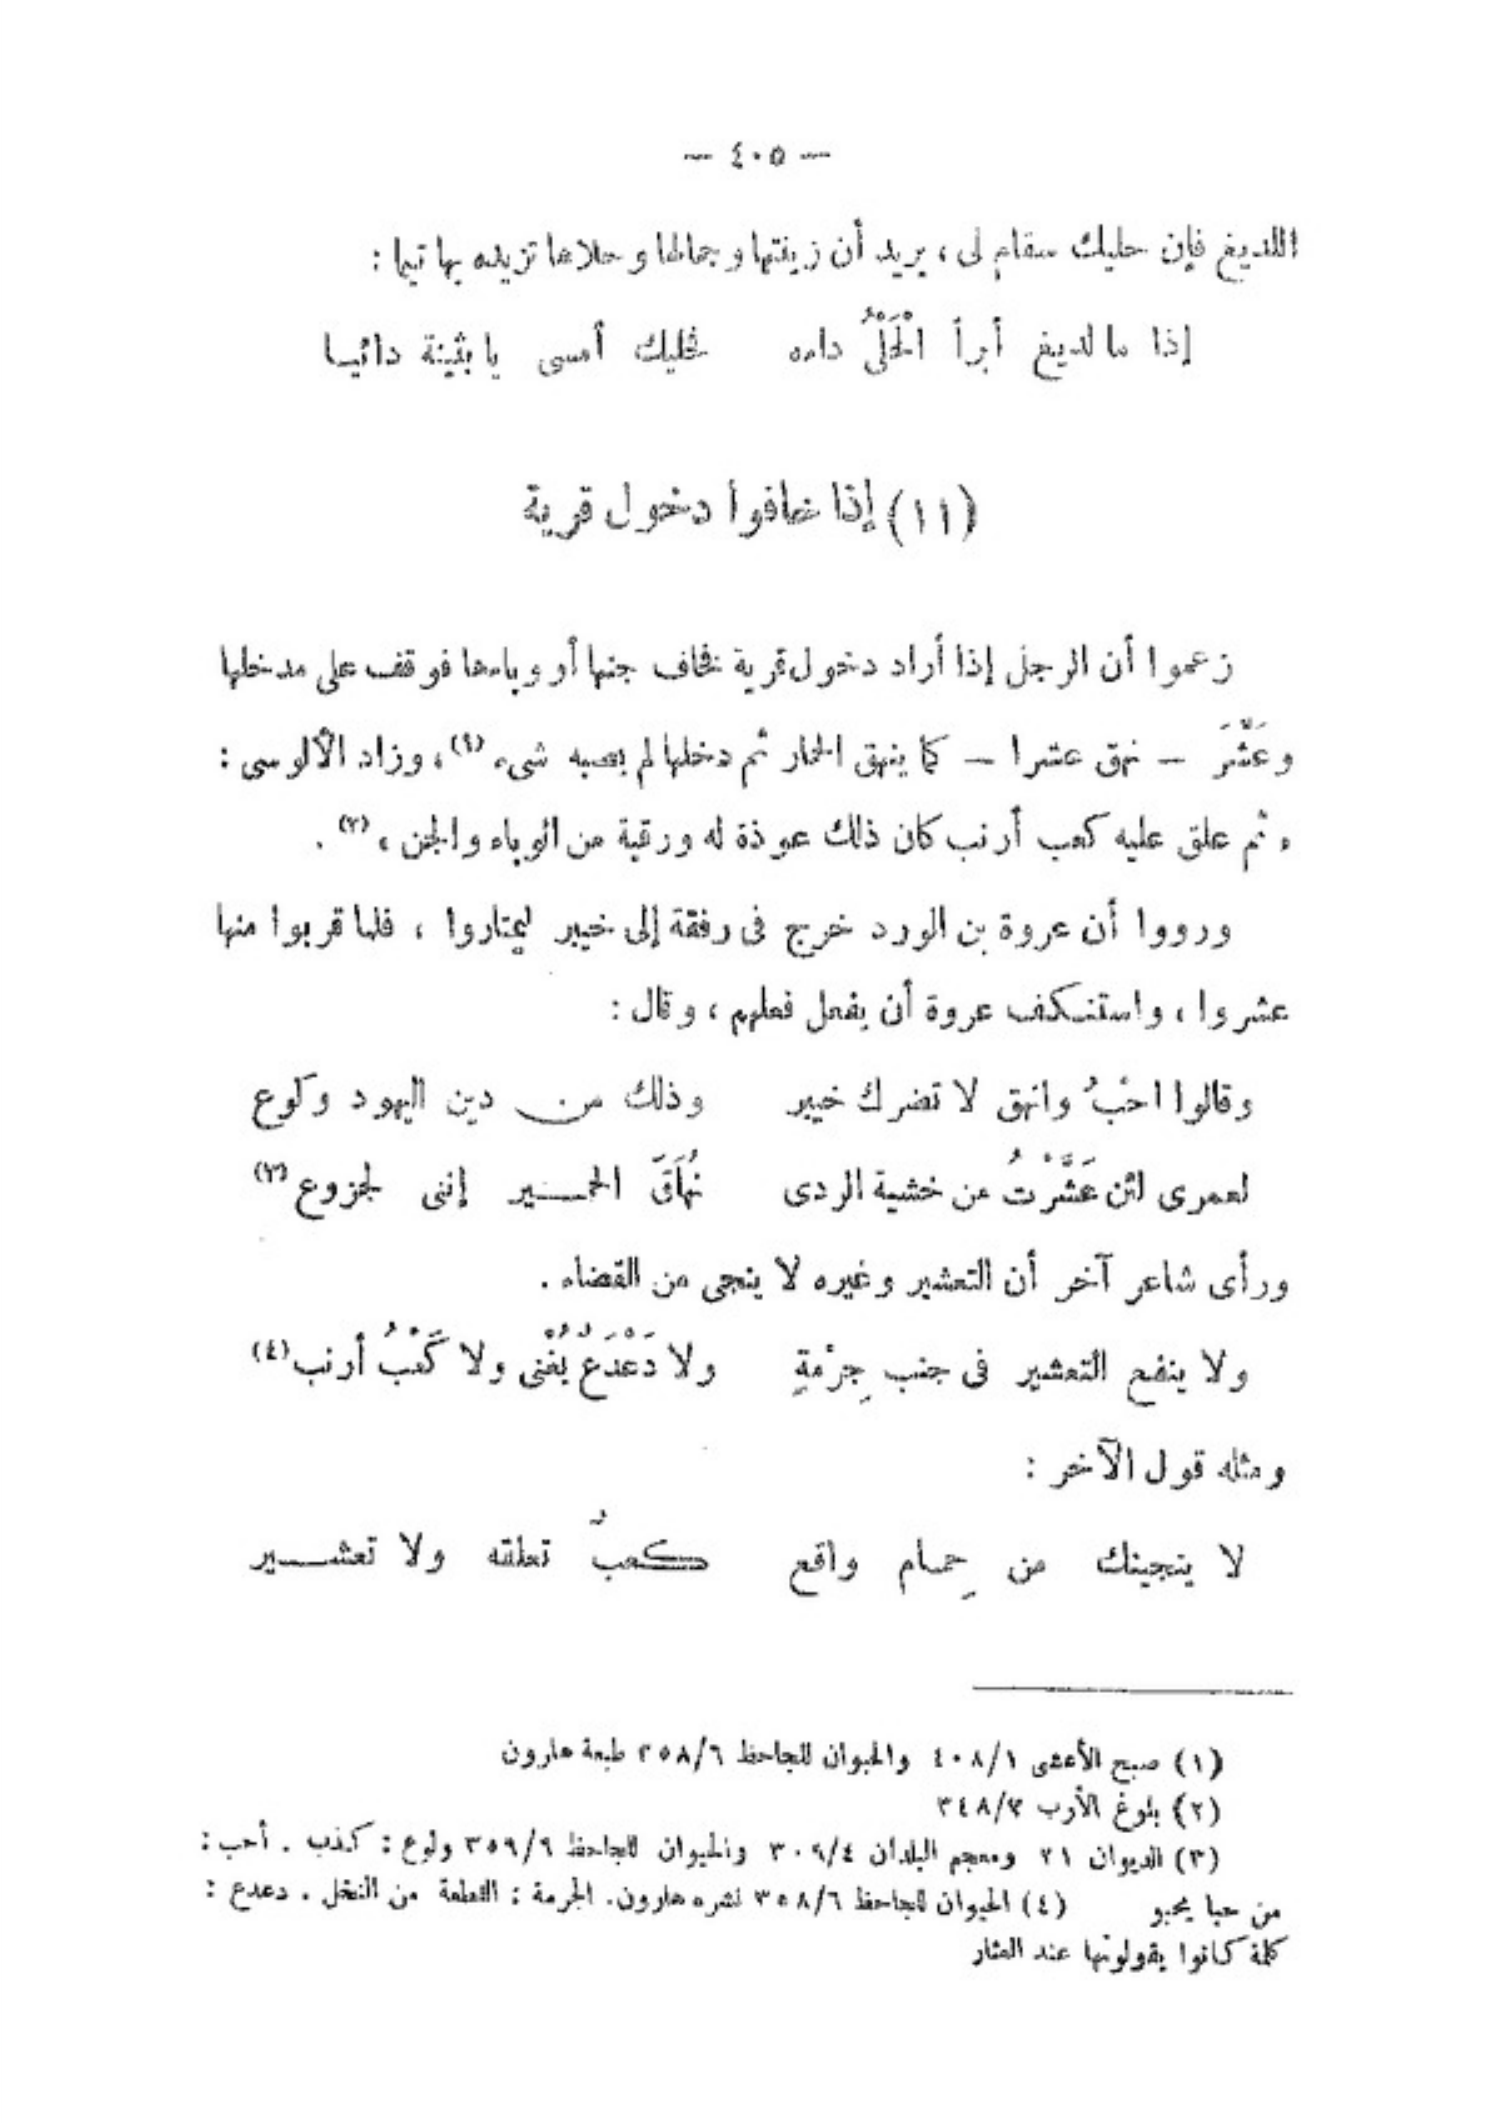 — ٤٠٥ —
اللديغ فإن حليك سقام لى ، يريد أن زينتها وجمالها وحلاها تزيده بها تيما :
إذا ما لديغ أبرأ الْحَلْىُ داءه فحليك أمسى يا بثينة دائيا
(١١) إذا خافوا دخول قرية
زعموا أن الرجل إذا أراد دخول قرية فخاف جنها أو وباءها فوقف على مدخلها
وعَشَّرَ — نهق عشرا — كما ينهق الحمار ثم دخلها لم يصبه شىء (١) ، وزاد الألوسى :
« ثم علق عليه كعب أرنب كان ذلك عوذة له ورقية من الوباء والجن » (٢) .
ورووا أن عروة بن الورد خرج فى رفقة إلى خيبر ليمتاروا ، فلما قربوا منها
عشروا ، واستنكف عروة أن يفعل فعلهم ، وقال :
وقالوا احْبُ وانهق لا تضرك خيبر وذلك من دين اليهود وكوع
لعمرى لئن عَشَّرْتُ من خشية الردى نُهَاقَ الحمــير إننى لجزوع (٣)
ورأى شاعر آخر أن التعشير وغيره لا ينجى من القضاء .
ولا ينفع التعشير فى جنب جِرْمةٍ ولا دَعْدَعٌ يُغْنى ولا كَعْبُ أرنب (٤)
ومثله قول الآخر :
لا ينجينك من حِمام واقع كعبٌ تعلقه ولا تعشــير
(١) صبح الأعشى ٤٠٨/١ والحيوان للجاحظ ٣٥٨/٦ طبعة هارون
(٢) بلوغ الأرب ٣٤٨/٣
(٣) الديوان ٢١ ومعجم البلدان ٣٠٩/٤ والحيوان للجاحظ ٣٥٩/٦ ولوع : كذب . أحب :
من حبا يحبو (٤) الحيوان للجاحظ ٣٥٨/٦ نشره هارون . الجرمة : القطعة من النخل . دعدع :
كلمة كانوا يقولونها عند العثار